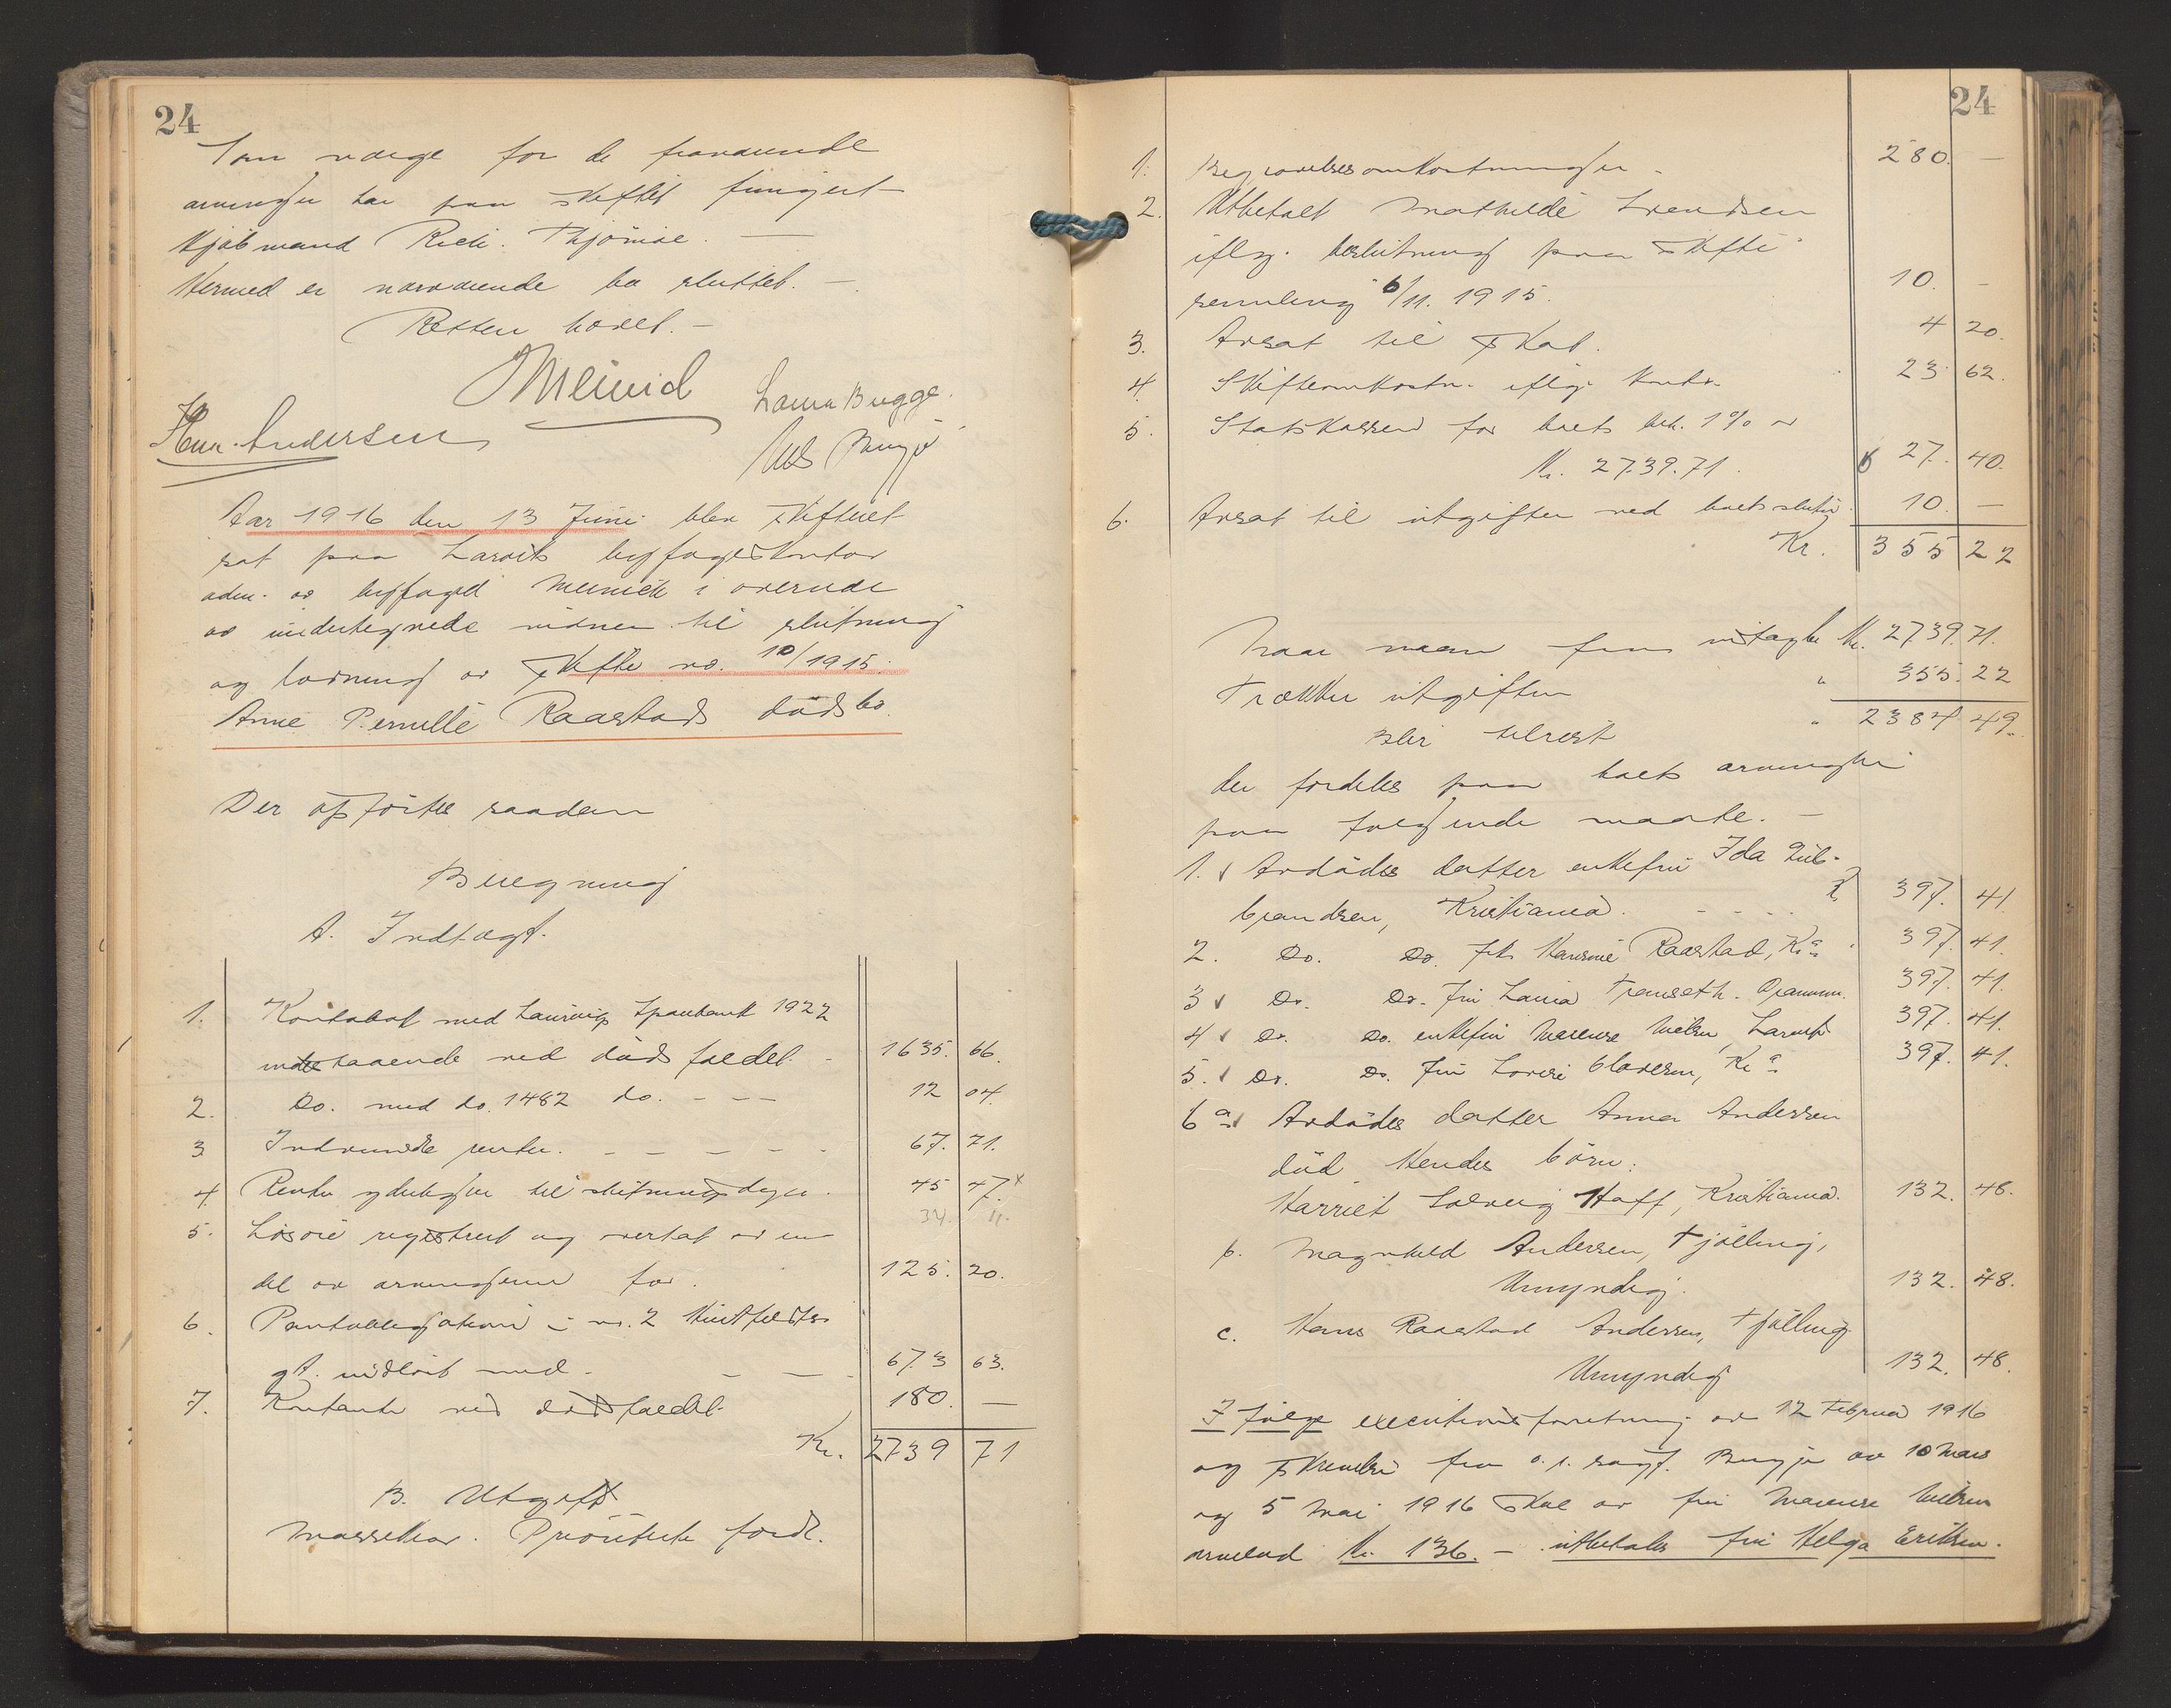 24
Som værge for de fraværende
arvinger har paa skiftet fungert
kjøbmand Rich. Thjømøe. —
Hermed er nærværende bo sluttet. —
Retten hævet. —
Meinich
Laura Bugge.
Hans Andersen
Aar 1916 den 13 Juni blev skifteret
sat paa Larviks byfogedkontor
adm. av byfoged Meinich i overvær
av undertegnede vidner til slutning
og lovning av Skifte no. 10/1915.
Anne Pernille Raastads dødsbo.
Der opførtes saadan
Beregning
A. Indtægt.
1. Kontrabok med Laurvigs Sparebank 1922
indestaaende ved dødsfaldet. - 1635. 66.
2. Do. med do. 1482 do. - - - 12 04.
3 Indvundne renter. - - - - - 67. 71.
4. Renter yderligere til slutningsdagen. 45 47 x
34 11.
5. Løsøre registrert og overtat av en
del av arvingerne for. 125. 20.
6. Pantobligation i no. 2
gt. indløst med. - - - 673 63.
7. Kontanter ved dødsfaldet. 180. —
Kr. 2739 71
B. Utgift
Massekrav. Prioriterte fordr.
24
1. Begravelsesomkostninger. 280. —
2. Utbetalt Mathilde Svendsen
iflg. beslutning paa skifte-
samling 6/11. 1915. 10. -
3. Avsat til skat. 4 20.
4. Skifteomkostn. iflg. konto. 23 62.
5. Statskassen for boets beh. 1% av
Kr. 2739.71. 27. 40.
6. Avsat til utgifter ved boets slutn. 10. —
Kr. 355 22
Naar man fra indtægten Kr. 2739.71.
trækker utgiften " 355. 22
Blir tilrest " 2384 49.
der fordeles paa boets arvinger
paa følgende maate. —
1. Avdødes datter enkefru Ida Gul-
brandsen, Kristiania. - - - - 397. 41.
2. Do. Do. frk. Hansine Raastad, Kr.a. 397. 41.
3 Do. Do. fru Laura Transeth. Drammen. 397. 41.
4 Do. Do. enkefru Marense Nielsen, Larvik. 397. 41.
5. Do. Do. fru Lovise Clavesen, Kr.a 397. 41.
6 a. Avdødes datter Anna Andersen
død. Hendes børn:
Harriet Solveig Hoff, Kristiania. 132. 48.
b. Magnhild Andersen, Tjølling,
Umyndig. 132. 48.
c. Hans Raastad Andersen, Tjølling
Umyndig 132. 48.
I følge executionsforretning av 12 Februar 1916
og skrivelse fra o.r. sagf. av 10 Mars
og 5 Mai 1916 skal av fru Marense Nielsens
arvelod Kr. 136. — utbetales fru Helga Eriksen.